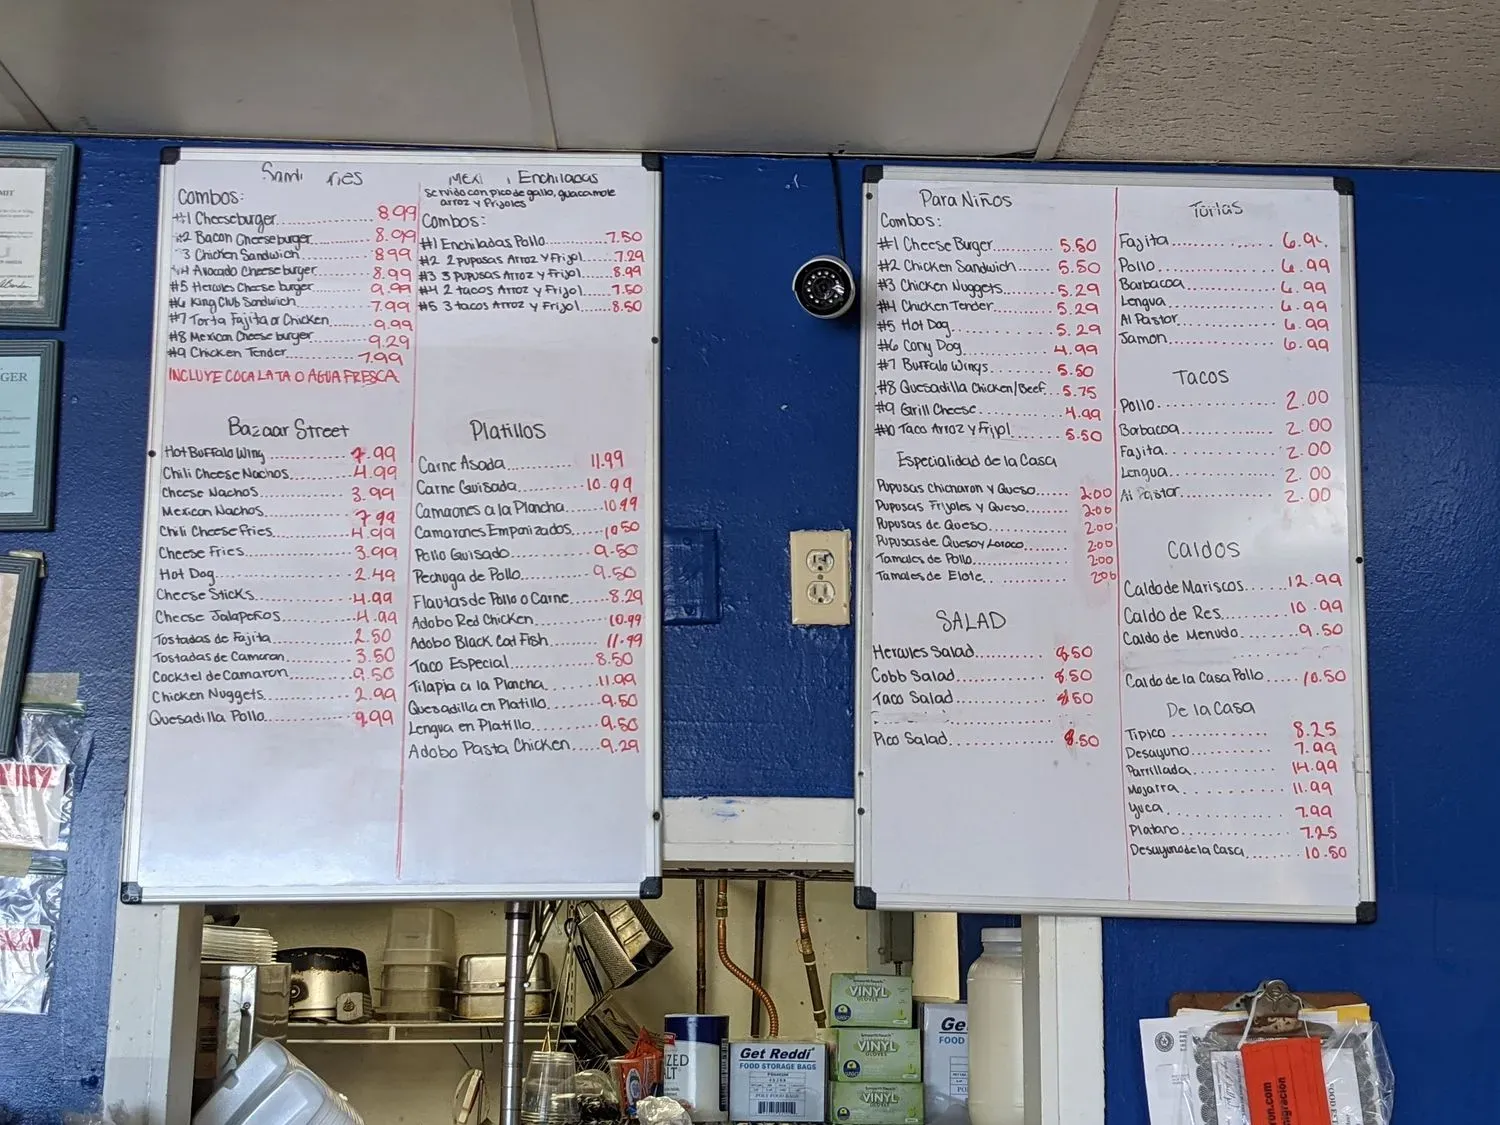 Combos:
#1 Cheeseburger 8.99
#2 Bacon Cheeseburger 8.99
3 Chicken Sandwich 8.99
#4 Avocado Cheeseburger 8.99
#5 Hercules Cheese burger 9.99
#6 King Club Sandwich 7.99
#7 Torta Fajita or Chicken 9.99
#8 Mexican Cheeseburger 9.29
#9 Chicken Tender 7.99
INCLUYE COCA LATA O AGUA FRESCA
Bazaar Street
Hot Buffalo Wing 7.99
Chili Cheese Nachos 4.99
Cheese Nachos 3.99
Mexican Nachos 7.99
Chili Cheese Fries 4.99
Cheese Fries 3.99
Hot Dog 2.49
Cheese Sticks 4.99
Cheese Jalapeños 4.99
Tostadas de Fajita 2.50
Tostadas de Camaron 3.50
Cocktel de Camaron 9.50
Chicken Nuggets 2.99
Quesadilla Pollo 9.99
Enchiladas
Servido con pico de gallo, guacamole
arroz y Frijoles
Combos:
#1 Enchiladas Pollo 7.50
#2 2 pupusas Arroz y Frijol 7.29
#3 3 pupusas Arroz y Frijol 8.99
#4 2 tacos Arroz y Frijol 7.50
#5 3 tacos Arroz y Frijol 8.50
Platillos
Carne Asada 11.99
Carne Guisada 10.99
Camarones a la Plancha 10.99
Camarones Empanizados 10.50
Pollo Guisado 9.50
Pechuga de Pollo 9.50
Flautas de Pollo o Carne 8.29
Adobo Red Chicken 10.99
Adobo Black Cat Fish 11.99
Taco Especial 8.50
Tilapia a la Plancha 11.99
Quesadilla en Platillo 9.50
Lengua en Platillo 9.50
Adobo Pasta Chicken 9.29
Para Niños
Combos:
#1 Cheese Burger 5.50
#2 Chicken Sandwich 5.50
#3 Chicken Nuggets 5.29
#4 Chicken Tender 5.29
#5 Hot Dog 5.29
#6 Corny Dog 4.99
#7 Buffalo Wings 5.50
#8 Quesadilla Chicken/Beef 5.75
#9 Grill Cheese 4.99
#10 Taco Arroz y Frijol 5.50
Especialidad de la Casa
Pupusas Chicharon y Queso 2.00
Pupusas Frijoles y Queso 2.00
Pupusas de Queso 2.00
Pupusas de Queso y Loroco 2.00
Tamales de Pollo 2.00
Tamales de Elote 2.00
SALAD
Hercules Salad 8.50
Cobb Salad 8.50
Taco Salad 8.50
Pico Salad 8.50
Tortas
Fajita 6.9
Pollo 6.99
Barbacoa 6.99
Lengua 6.99
Al Pastor 6.99
Jamon 6.99
TACOS
Pollo 2.00
Barbacoa 2.00
Fajita 2.00
Lengua 2.00
Al Pastor 2.00
CALDOS
Caldo de Mariscos 12.99
Caldo de Res 10.99
Caldo de Menudo 9.50
Caldo de la Casa Pollo 10.50
De la Casa
Tipico 8.25
Desayuno 7.99
Parrillada 14.99
Mojarra 11.99
Yuca 7.99
Platano 7.25
Desayuno de la Casa 10.50
VINYL
GLOVES
VINYL
GLOVES
VINYL
Get Reddi
FOOD STORAGE BAGS
Ge